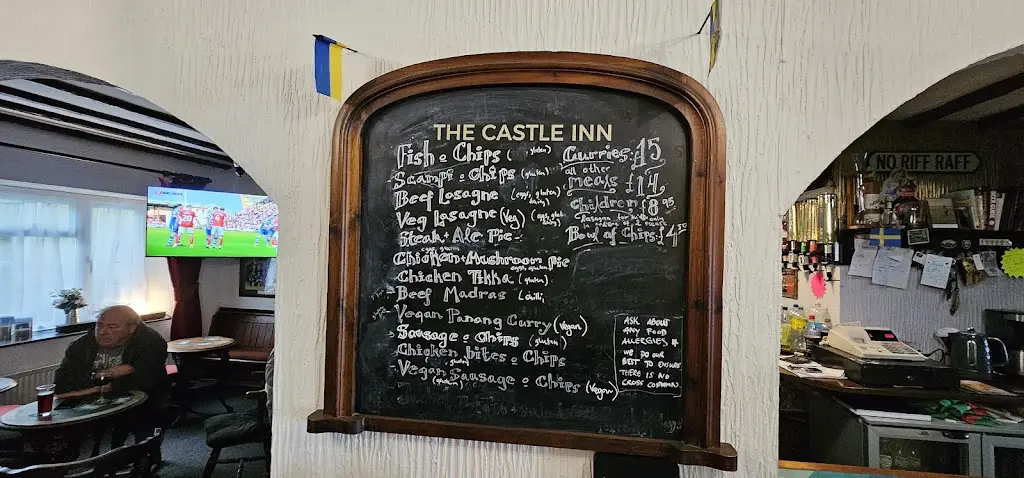 THE CASTLE INN
Fish & Chips (gluten)
Scampi & Chips (gluten)
Beef Lasagne (egg, gluten
Veg lasagne (Veg)
Steak + Ale Pie
Chicken + Mushroom Pie
Chicken Tikka (gluten)
Beef Madras (chilli)
Vegan Panang Curry (Vegan)
Sausage & Chips (gluten)
Chicken bites & Chips
Vegan Sausage & Chips (Vegan)
(gluten)
Curries: £15
all other
meals £14
Children £8.95
Bowl of Chips: £4
ASK ABOUT
ANY FOOD
ALLERGIES *
WE DO OUR
BEST TO ENSURE
THERE IS NO
CROSS
NO RIFF RAFF
20